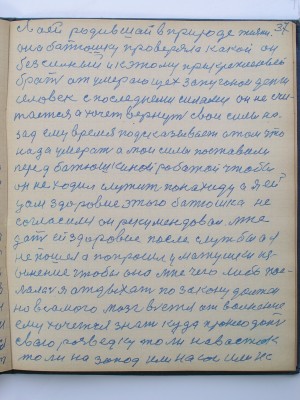 37
Я ей родившай в природе такии.
она батюшку проверяла какой он
безсильный и к этому прикрепляли
брат от умерающех запускои деньги
человек с последними силами он не счи-
тается а хочет вернут свои силы на-
зад ему время подсказывает о том что
нада умерат а мои силы поставили
перед батюшкиной работай чтобы
он не ходил служит понахиду а я ей
дам здоровие этого батюшка не
согласился он рекомендовал мне
дат ей здоровие после службы а я
не пошел а попросил у матушки из-
винение чтобы она мне чего либо
я отдыхат по закону должен
но в самого мозг вуется от волнение
ему хочется знат куда производит
свою розведку то ли на восток
то ли на запод или на сон или